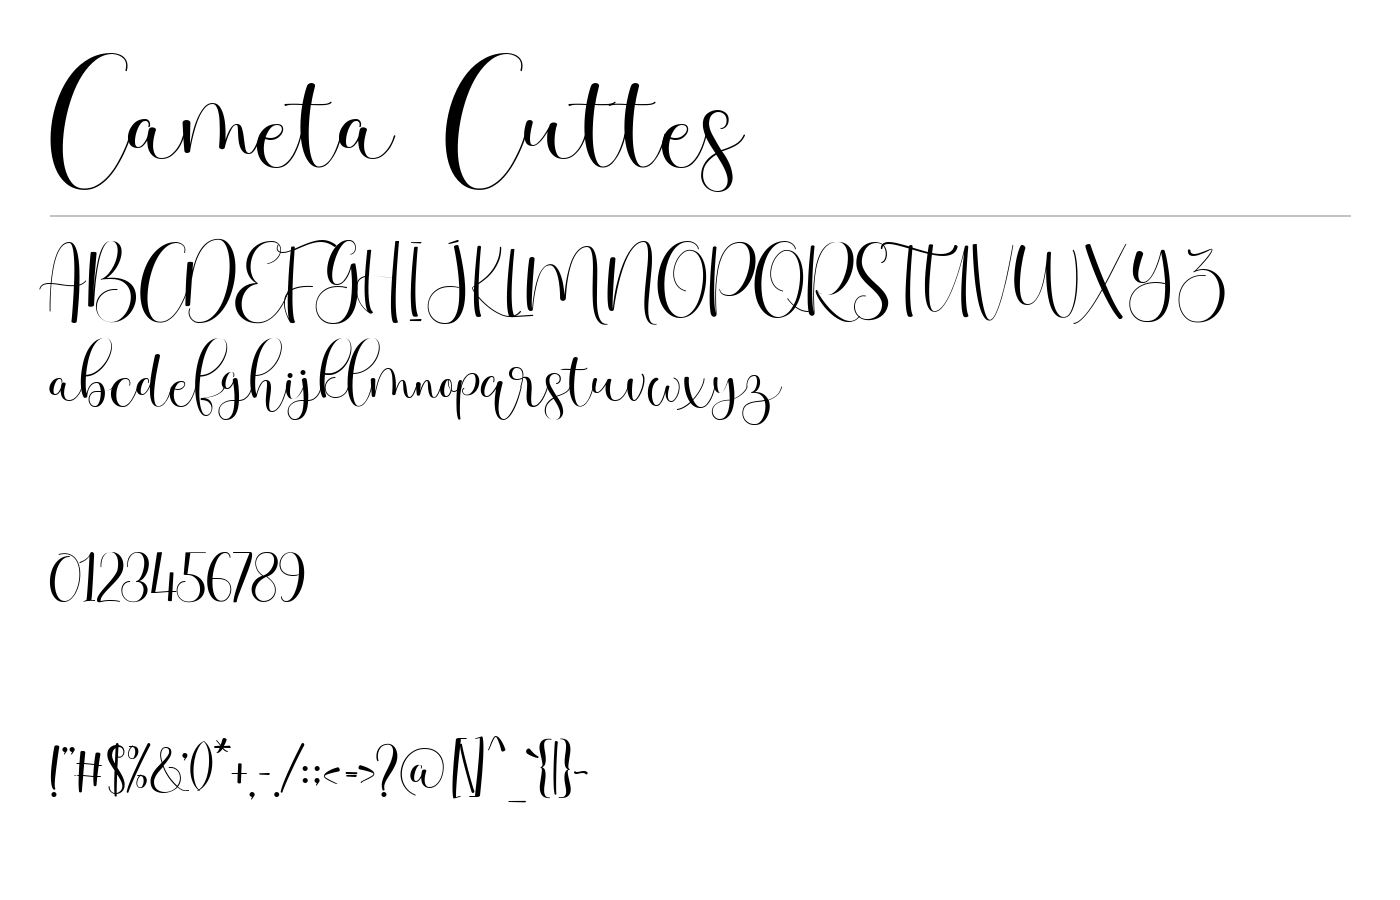 Cameta Cuttes
ABCDEFGHIJKLMNOPQRSTUVWXYZ
abcdefghijklmnopqrstuvwxyz
0123456789
!"#$%&'()*+,-./:;<=>?@[\]^_`{|}~